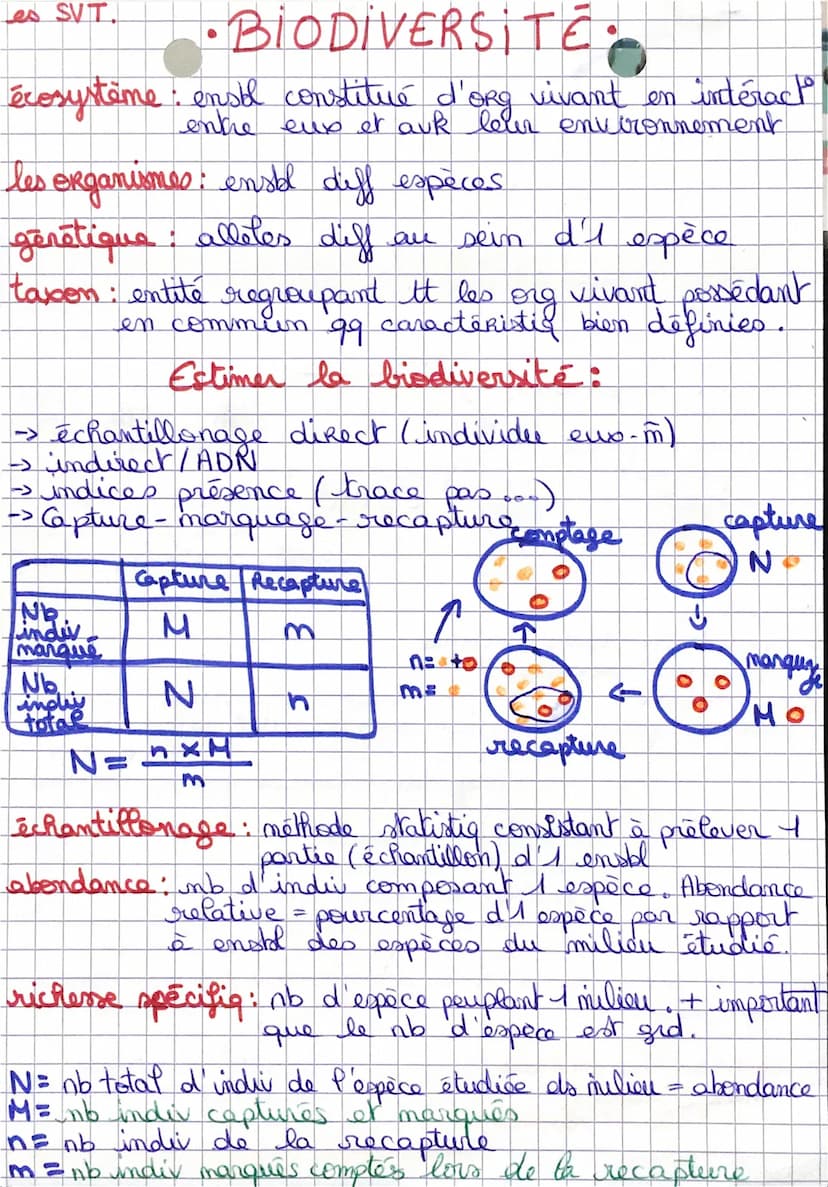 es SVT.
• BIODIVERSITÉ •
écosystème : ensbl constitué d'org vivant en intéract°
entre eux et avk leur environnement
les organismes : ensbl diff espèces
génétique : allèles diff au sein d'1 espèce
taxon : entité regroupant tt les org vivant possédant
en commun qq caractéristiq bien définies.
Estimer la biodiversité :
-> échantillonage direct (individu eux-m̄)
-> indirect / ADN
-> indices présence (trace pas ...)
-> Capture - marquage - recapture
comptage
capture
N
Capture Recapture
Nb indiv marqué M m
n= +
m=
marquage
M
Nb indiv total N n
recapture
N = n x M / m
échantillonage : méthode statistiq consistant à prélever 1
partie (échantillon) d'1 ensbl
abondance : nb d'indiv composant 1 espèce. Abondance
relative = pourcentage d'1 espèce par rapport
à ensbl des espèces du milieu étudié.
richesse spécifiq : nb d'espèce peuplant 1 milieu. + important
que le nb d'espèce est grd.
N = nb total d'indiv de l'espèce étudiée ds milieu = abondance
M = nb indiv capturés et marqués
n = nb indiv de la recapture
m = nb indiv marqués comptés lors de la recapture